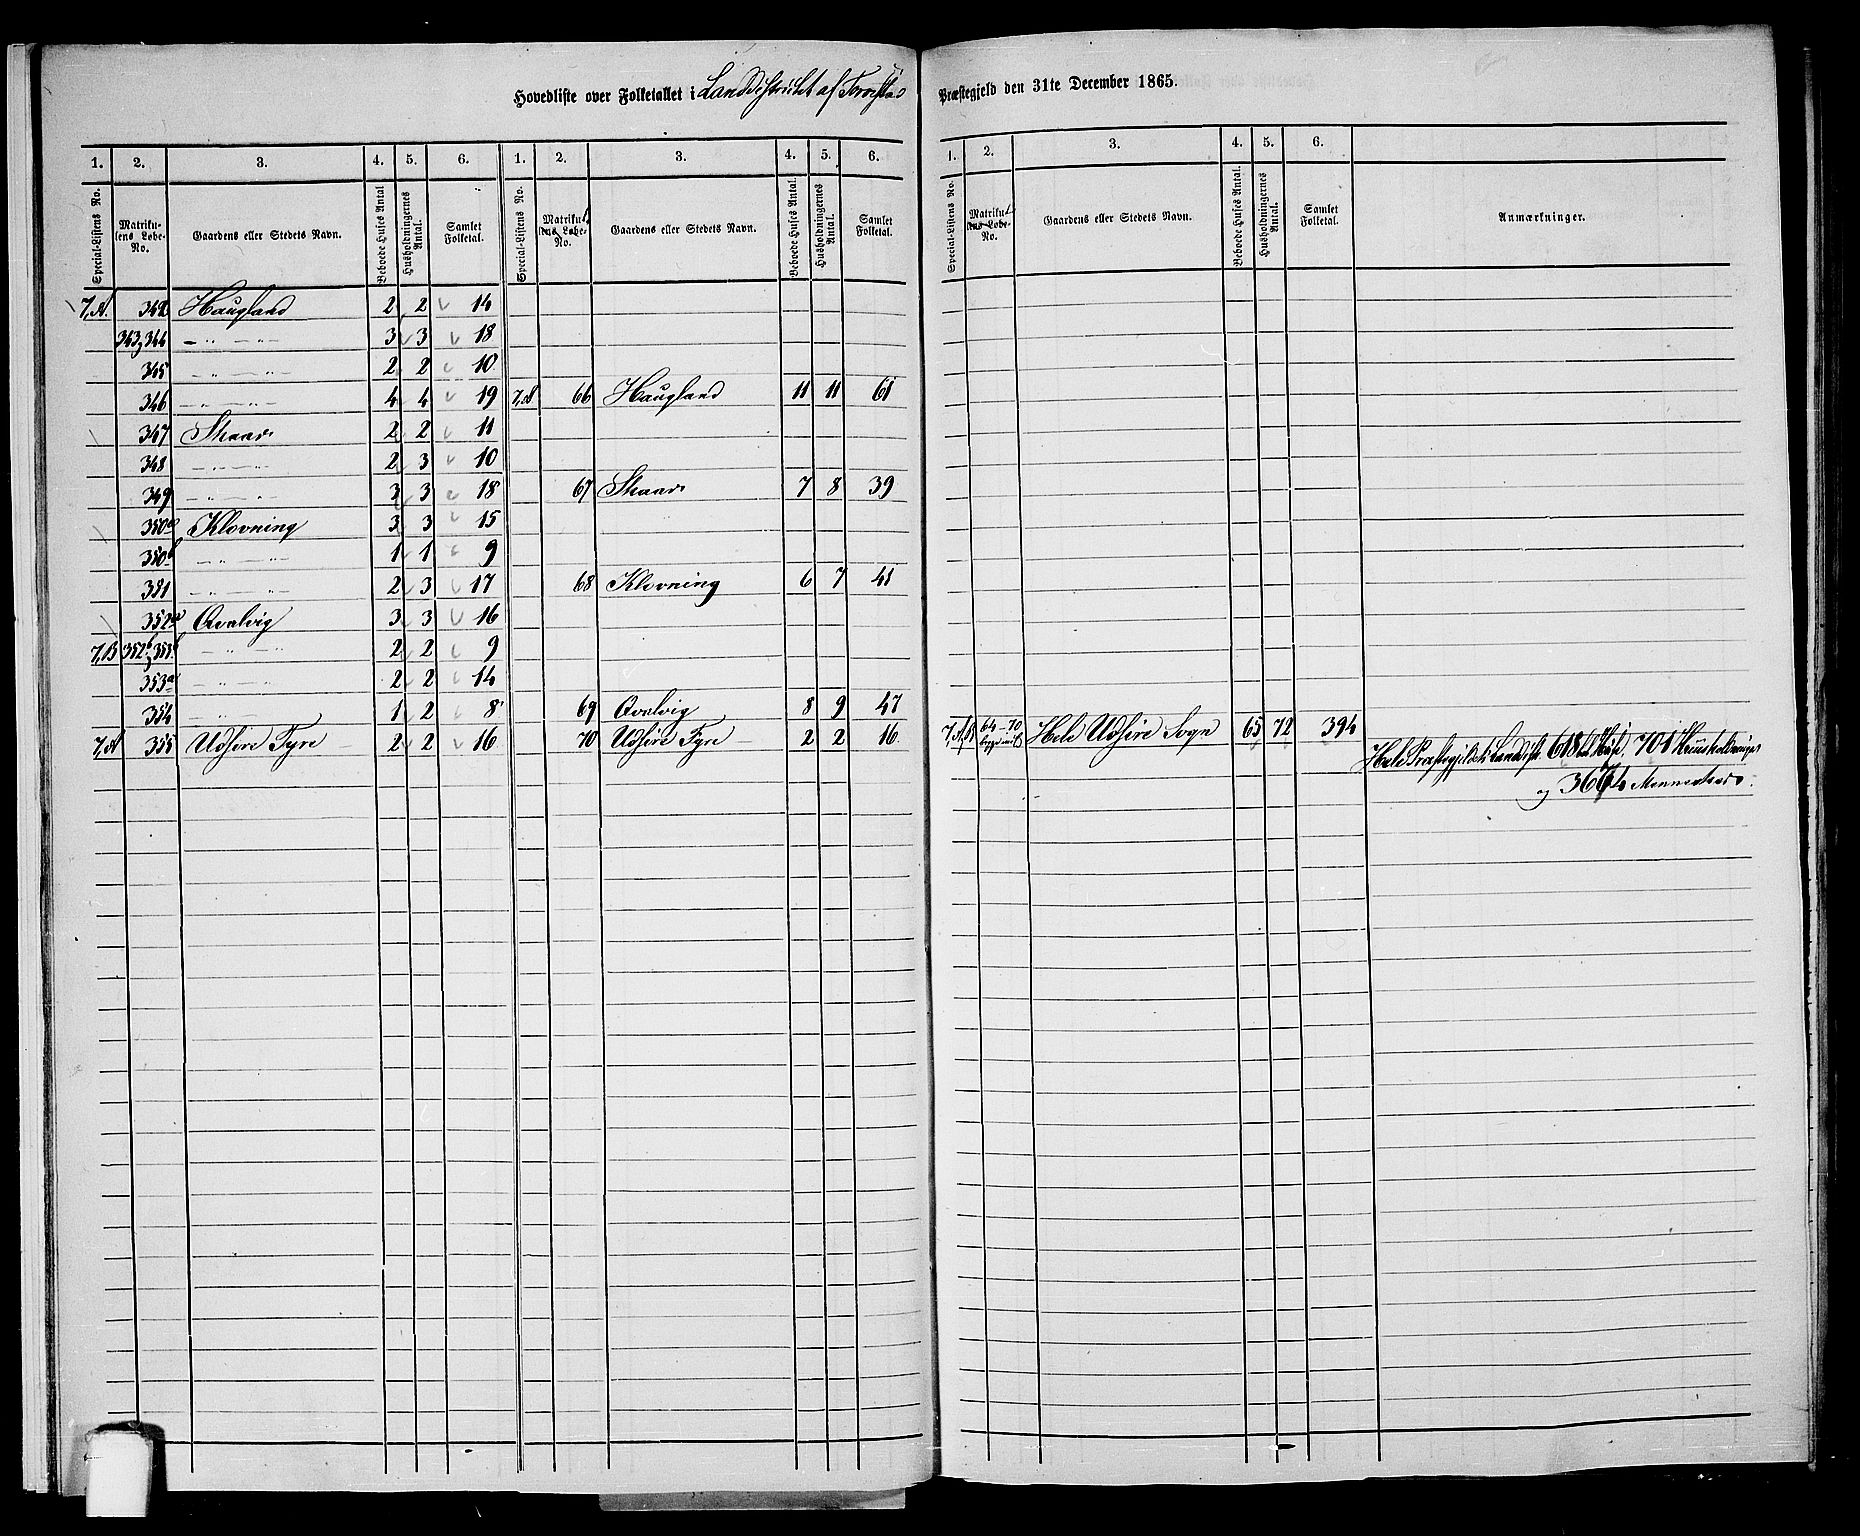 Hovedliste over Folketallet i Landdistriktet af Torvestad
Præstegjeld den 31te December 1865.
1. 2. 3. 4. 5. 6. 1. 2. 3. 4. 5. 6. 1. 2. 3. 4. 5. 6.
Special-Listens No. Matrikulens Løbe-No. Gaardens eller Stedets Navn. Beboede Huses Antal Husholdningernes Antal. Samlet Folketal. Special-Listens No. Matrikulens Løbe-No. Gaardens eller Stedets Navn. Beboede Huses Antal. Husholdningernes Antal. Samlet Folketal. Special-Listens No. Matrikulens Løbe-No. Gaardens eller Stedets Navn. Beboede Huses Antal. Husholdningernes Antal. Samlet Folketal. Anmærkninger.
7,A. 342 Haugland 2 2 14
343, 344 - " - " - 3 3 18
345 - " - " - 2 2 10
346 - " - " - 4 4 19 7,A 66 Haugland 11 11 61
347 Skaar 2 2 11
348 - " - " - 2 3 10
349 - " - " - 3 3 18 67 Skaar 7 8 39
350a Klovning 3 3 15
350b - " - " - 1 1 9
351 - " - " - 2 3 17 68 Klovning 6 7 41
352a Qvalvig 3 3 16
7,B 352b, 353b - " - " - 2 2 9
353a - " - " - 2 2 14
354 - " - " - 1 2 8 69 Qvalvig 8 9 47
7,A 355 Udsire Fyre 2 2 16 70 Udsire Fyre 2 2 16 7,A,B 64-70 Hele Udsire Sogn 65 72 394
Hele Præstegjeldets Landdist. 618 Huse, 701 Huusholdninger
og 3674 Mennesker.